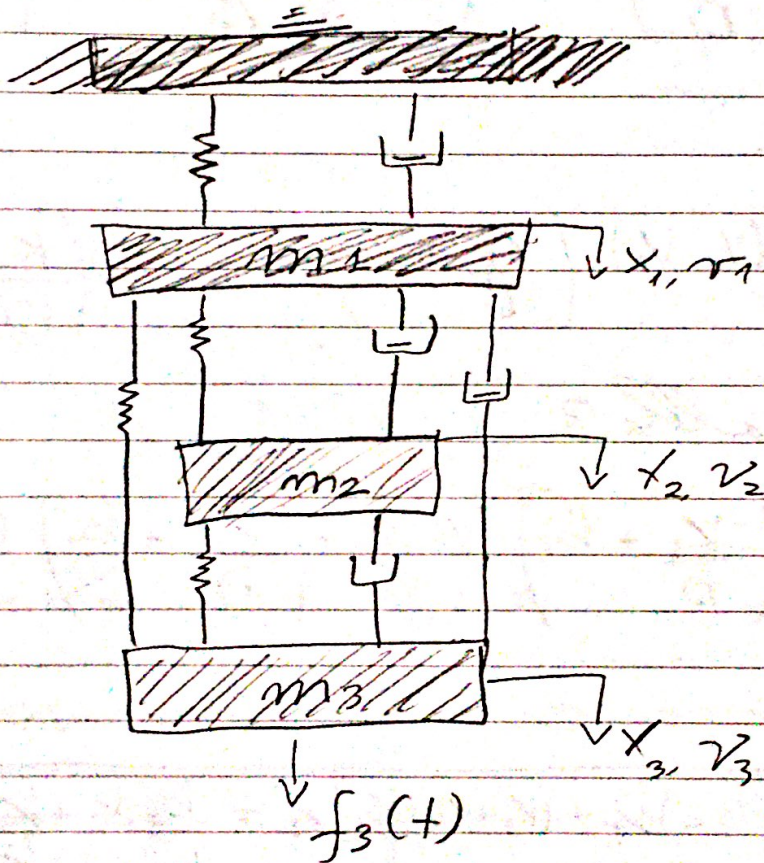 m1
x1, v1
m2
x2, v2
m3
x3, v3
f3(t)